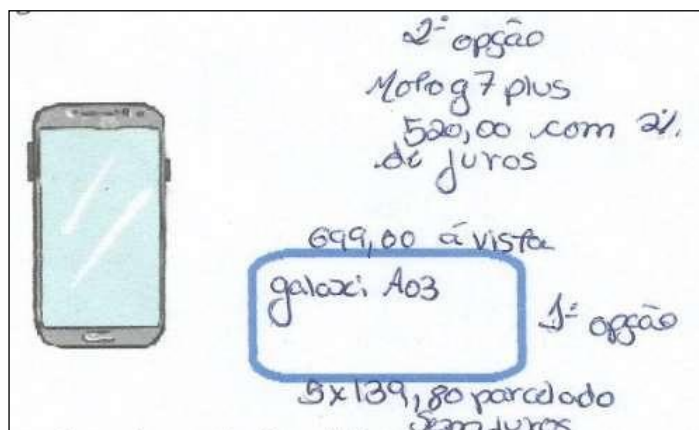 2ª opção
Moto g7 plus
520,00 com 2%
de juros
699,00 á vista
galaxi A03
1ª opção
5x139,80 parcelado
Sem juros